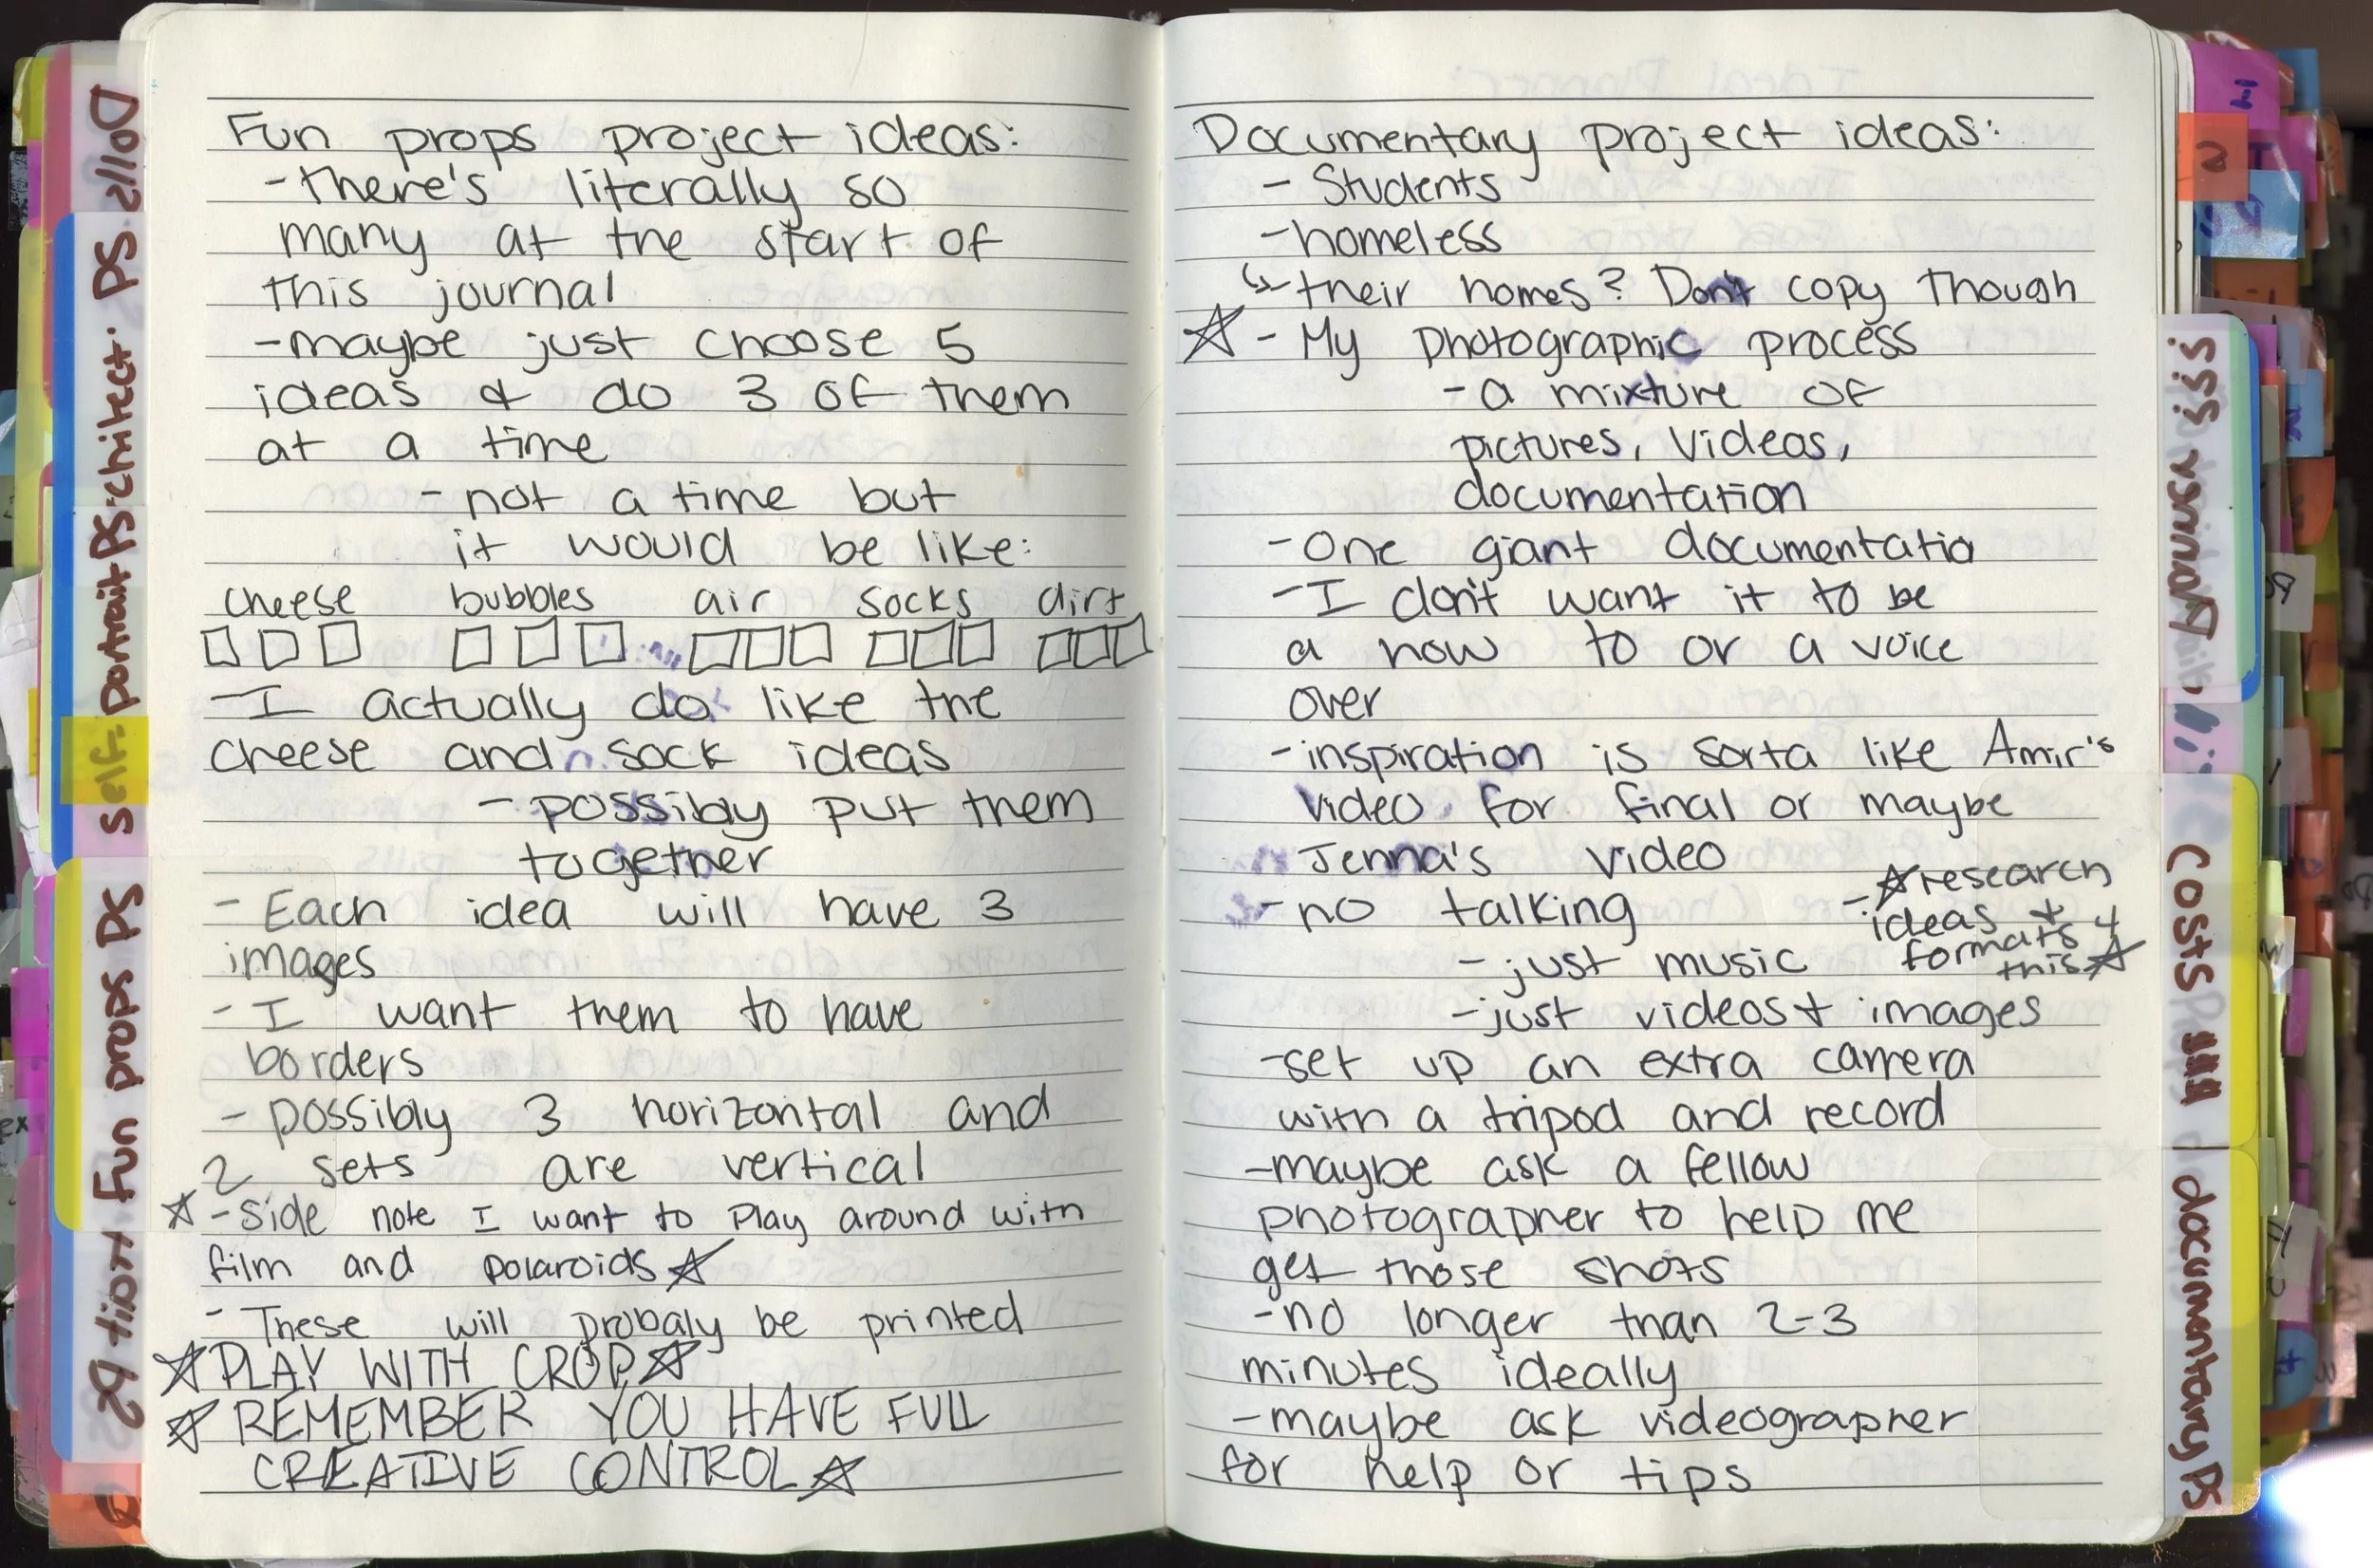 Fun props project ideas:
- there's literally so
many at the start of
this journal
- maybe just choose 5
ideas & do 3 of them
at a time
- not a time but
it would be like:
cheese bubbles air socks dirt
- I actually do like the
cheese and sock ideas
- possibly put them
together
- Each idea will have 3
images
- I want them to have
borders
- possibly 3 horizontal and
2 sets are vertical
☆ - Side note I want to play around with
film and polaroids ☆
- These will probaly be printed
☆ PLAY WITH CROP ☆
☆ REMEMBER YOU HAVE FULL
CREATIVE CONTROL ☆
Documentary project ideas:
- Students
- homeless
↳ - their homes? Don't copy though
☆ - My photographic process
- a mixture of
pictures, videos,
documentation
- One giant documentatio
- I don't want it to be
a how to or a voice
over
- inspiration is sorta like Amir's
video for final or maybe
Jenna's video
- no talking
- ☆ research
ideas +
formats 4
this ☆
- just music
- just videos + images
- set up an extra camera
with a tripod and record
- maybe ask a fellow
photographer to help me
get those shots
- no longer than 2-3
minutes ideally
- maybe ask videographer
for help or tips
Dolls
PS
self-portrait PS
Fun props PS
Costs
documentary PS